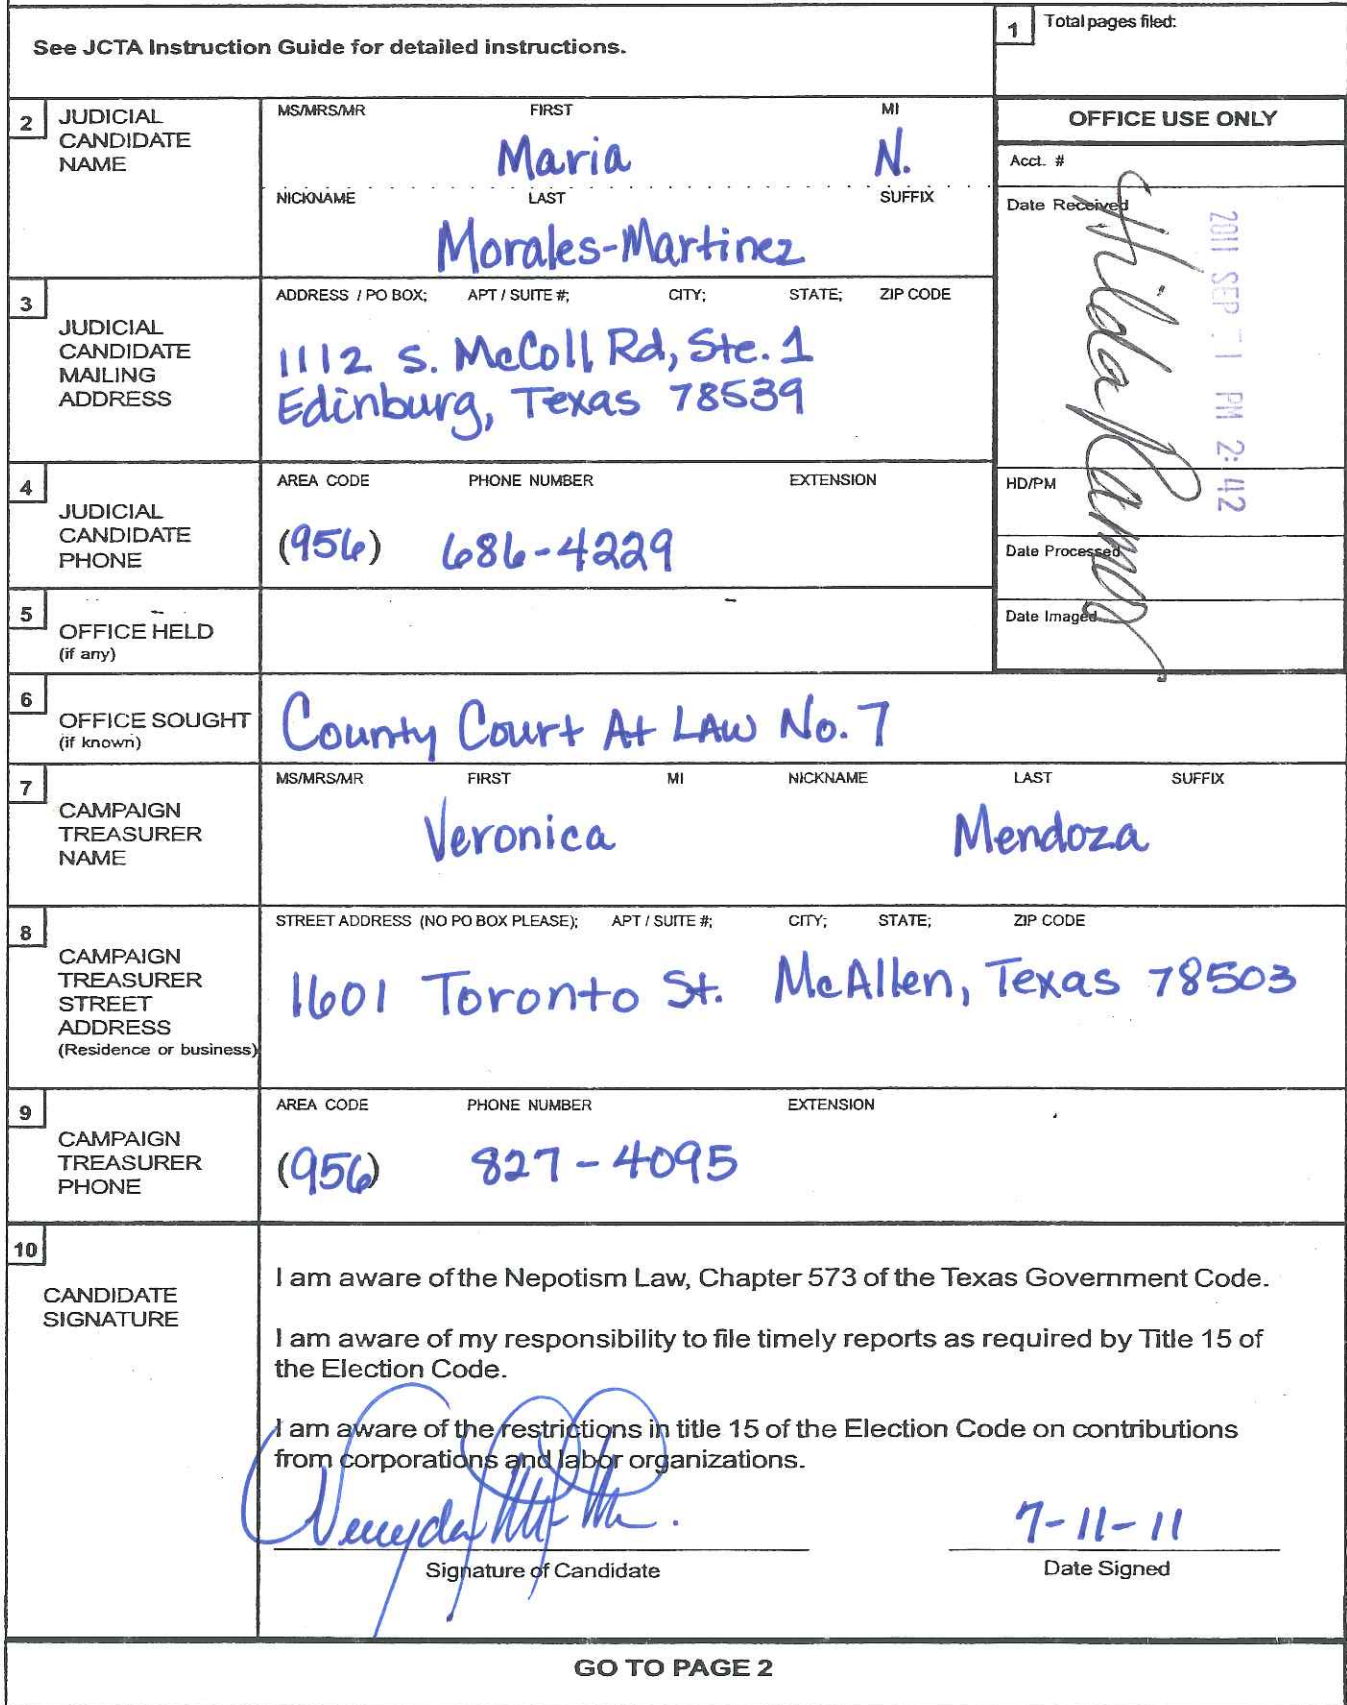 See JCTA Instruction Guide for detailed instructions.
1 Total pages filed:
2 JUDICIAL CANDIDATE NAME
MS/MRS/MR FIRST MI
Maria N.
NICKNAME LAST SUFFIX
Morales-Martinez
OFFICE USE ONLY
Acct. #
Date Received
2011 SEP -1 PM 2:42
Hilda Ramos
HD/PM
Date Processed
Date Imaged
3 JUDICIAL CANDIDATE MAILING ADDRESS
ADDRESS / PO BOX; APT / SUITE #; CITY; STATE; ZIP CODE
1112 S. McColl Rd, Ste. 1
Edinburg, Texas 78539
4 JUDICIAL CANDIDATE PHONE
AREA CODE PHONE NUMBER EXTENSION
(956) 686-4229
5 OFFICE HELD
(if any)
6 OFFICE SOUGHT
(if known)
County Court At LAw No. 7
7 CAMPAIGN TREASURER NAME
MS/MRS/MR FIRST MI NICKNAME LAST SUFFIX
Veronica Mendoza
8 CAMPAIGN TREASURER STREET ADDRESS
(Residence or business)
STREET ADDRESS (NO PO BOX PLEASE); APT / SUITE #; CITY; STATE; ZIP CODE
1601 Toronto St. McAllen, Texas 78503
9 CAMPAIGN TREASURER PHONE
AREA CODE PHONE NUMBER EXTENSION
(956) 827-4095
10 CANDIDATE SIGNATURE
I am aware of the Nepotism Law, Chapter 573 of the Texas Government Code.
I am aware of my responsibility to file timely reports as required by Title 15 of
the Election Code.
I am aware of the restrictions in title 15 of the Election Code on contributions
from corporations and labor organizations.
7-11-11
Signature of Candidate Date Signed
GO TO PAGE 2